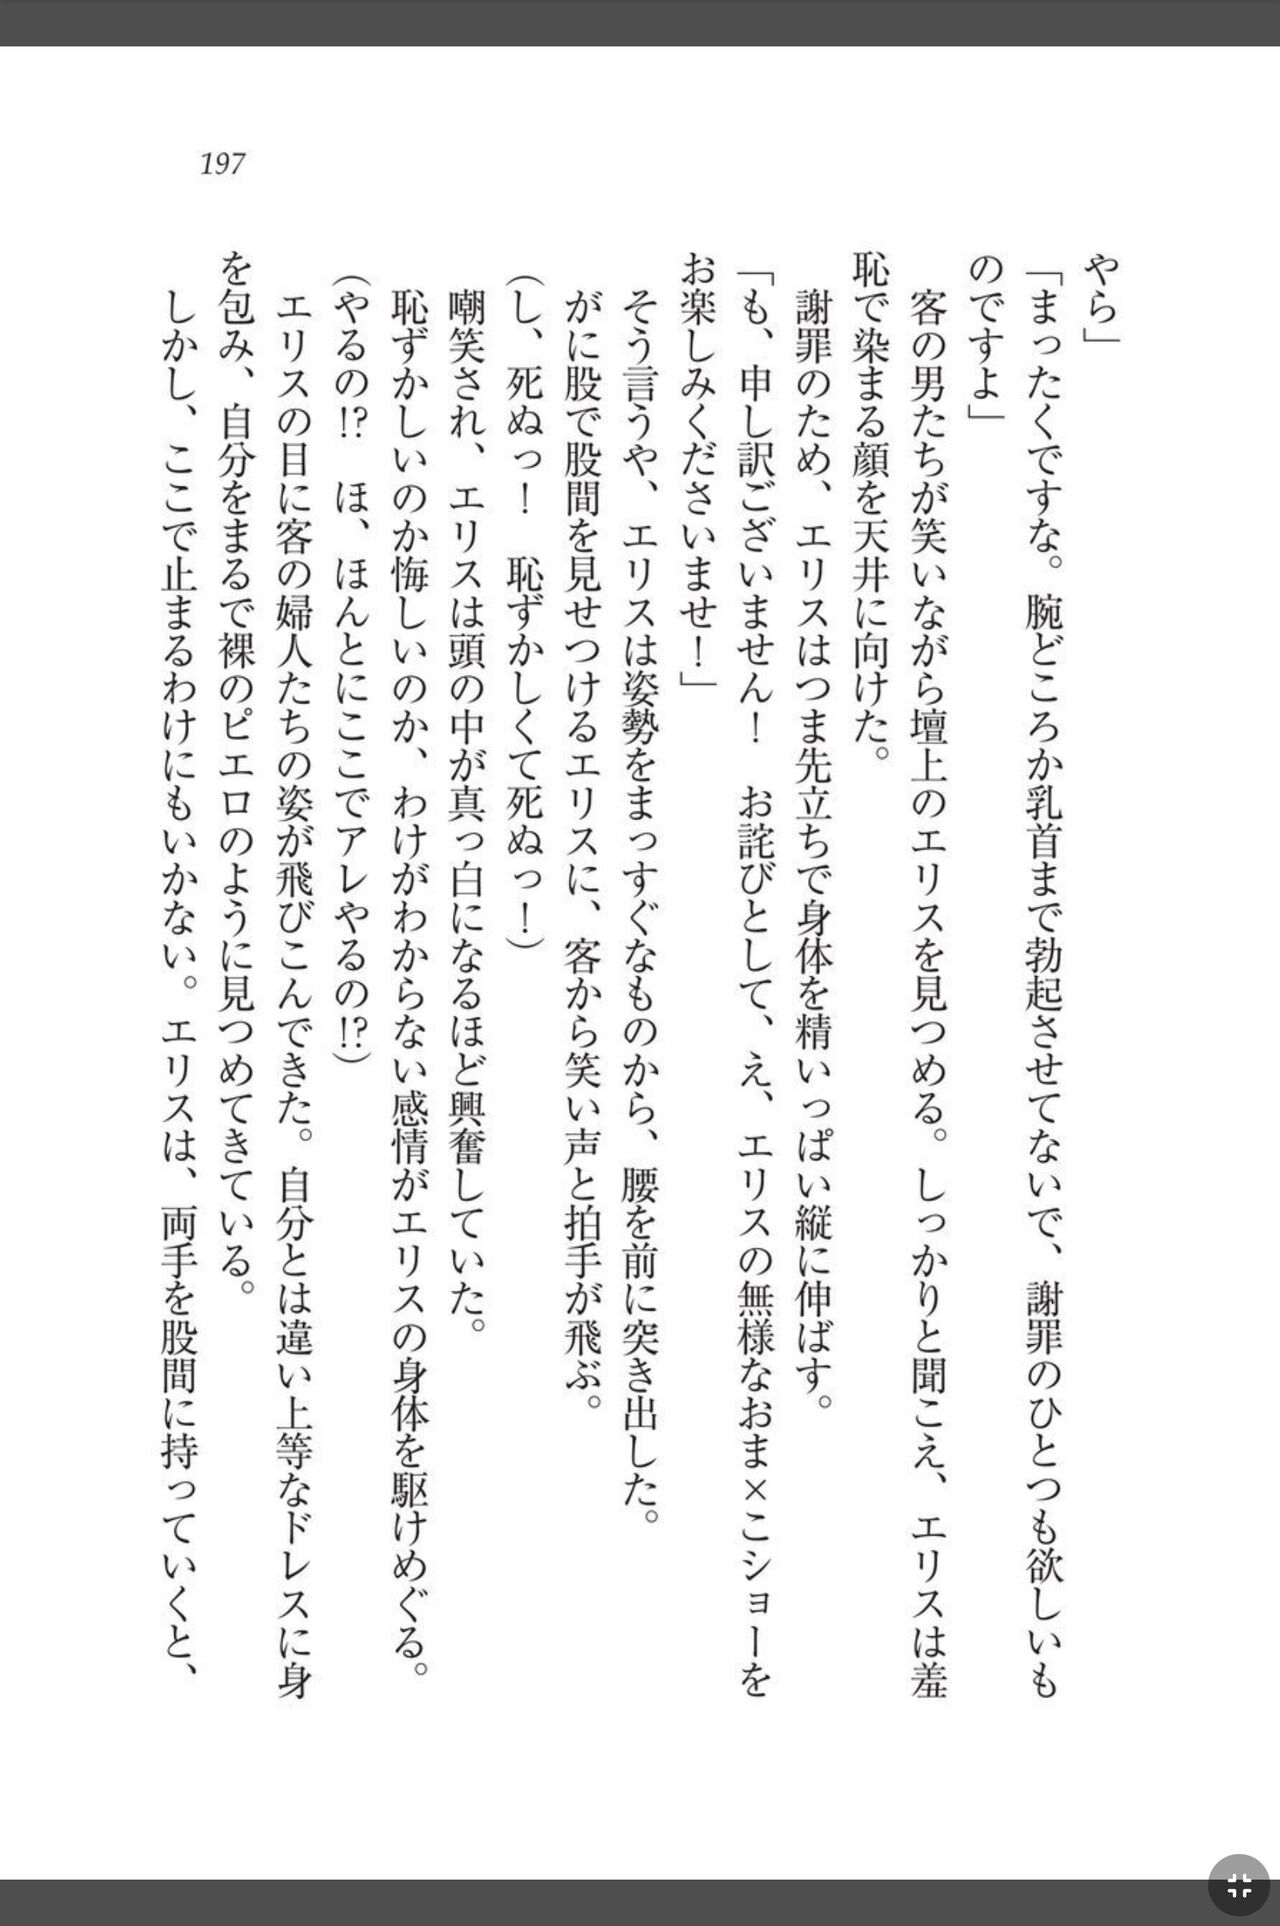 197
やら」
「まったくですな。腕どころか乳首まで勃起させてないで、謝罪のひとつも欲しいも
のですよ」
客の男たちが笑いながら壇上のエリスを見つめる。しっかりと聞こえ、エリスは羞
恥で染まる顔を天井に向けた。
謝罪のため、エリスはつま先立ちで身体を精いっぱい縦に伸ばす。
「も、申し訳ございません！　お詫びとして、え、エリスの無様なおま×こショーを
お楽しみくださいませ！」
そう言うや、エリスは姿勢をまっすぐなものから、腰を前に突き出した。
がに股で股間を見せつけるエリスに、客から笑い声と拍手が飛ぶ。
（し、死ぬっ！　恥ずかしくて死ぬっ！）
嘲笑され、エリスは頭の中が真っ白になるほど興奮していた。
恥ずかしいのか悔しいのか、わけがわからない感情がエリスの身体を駆けめぐる。
（やるの!?　ほ、ほんとにここでアレやるの!?）
エリスの目に客の婦人たちの姿が飛びこんできた。自分とは違い上等なドレスに身
を包み、自分をまるで裸のピエロのように見つめてきている。
しかし、ここで止まるわけにもいかない。エリスは、両手を股間に持っていくと、